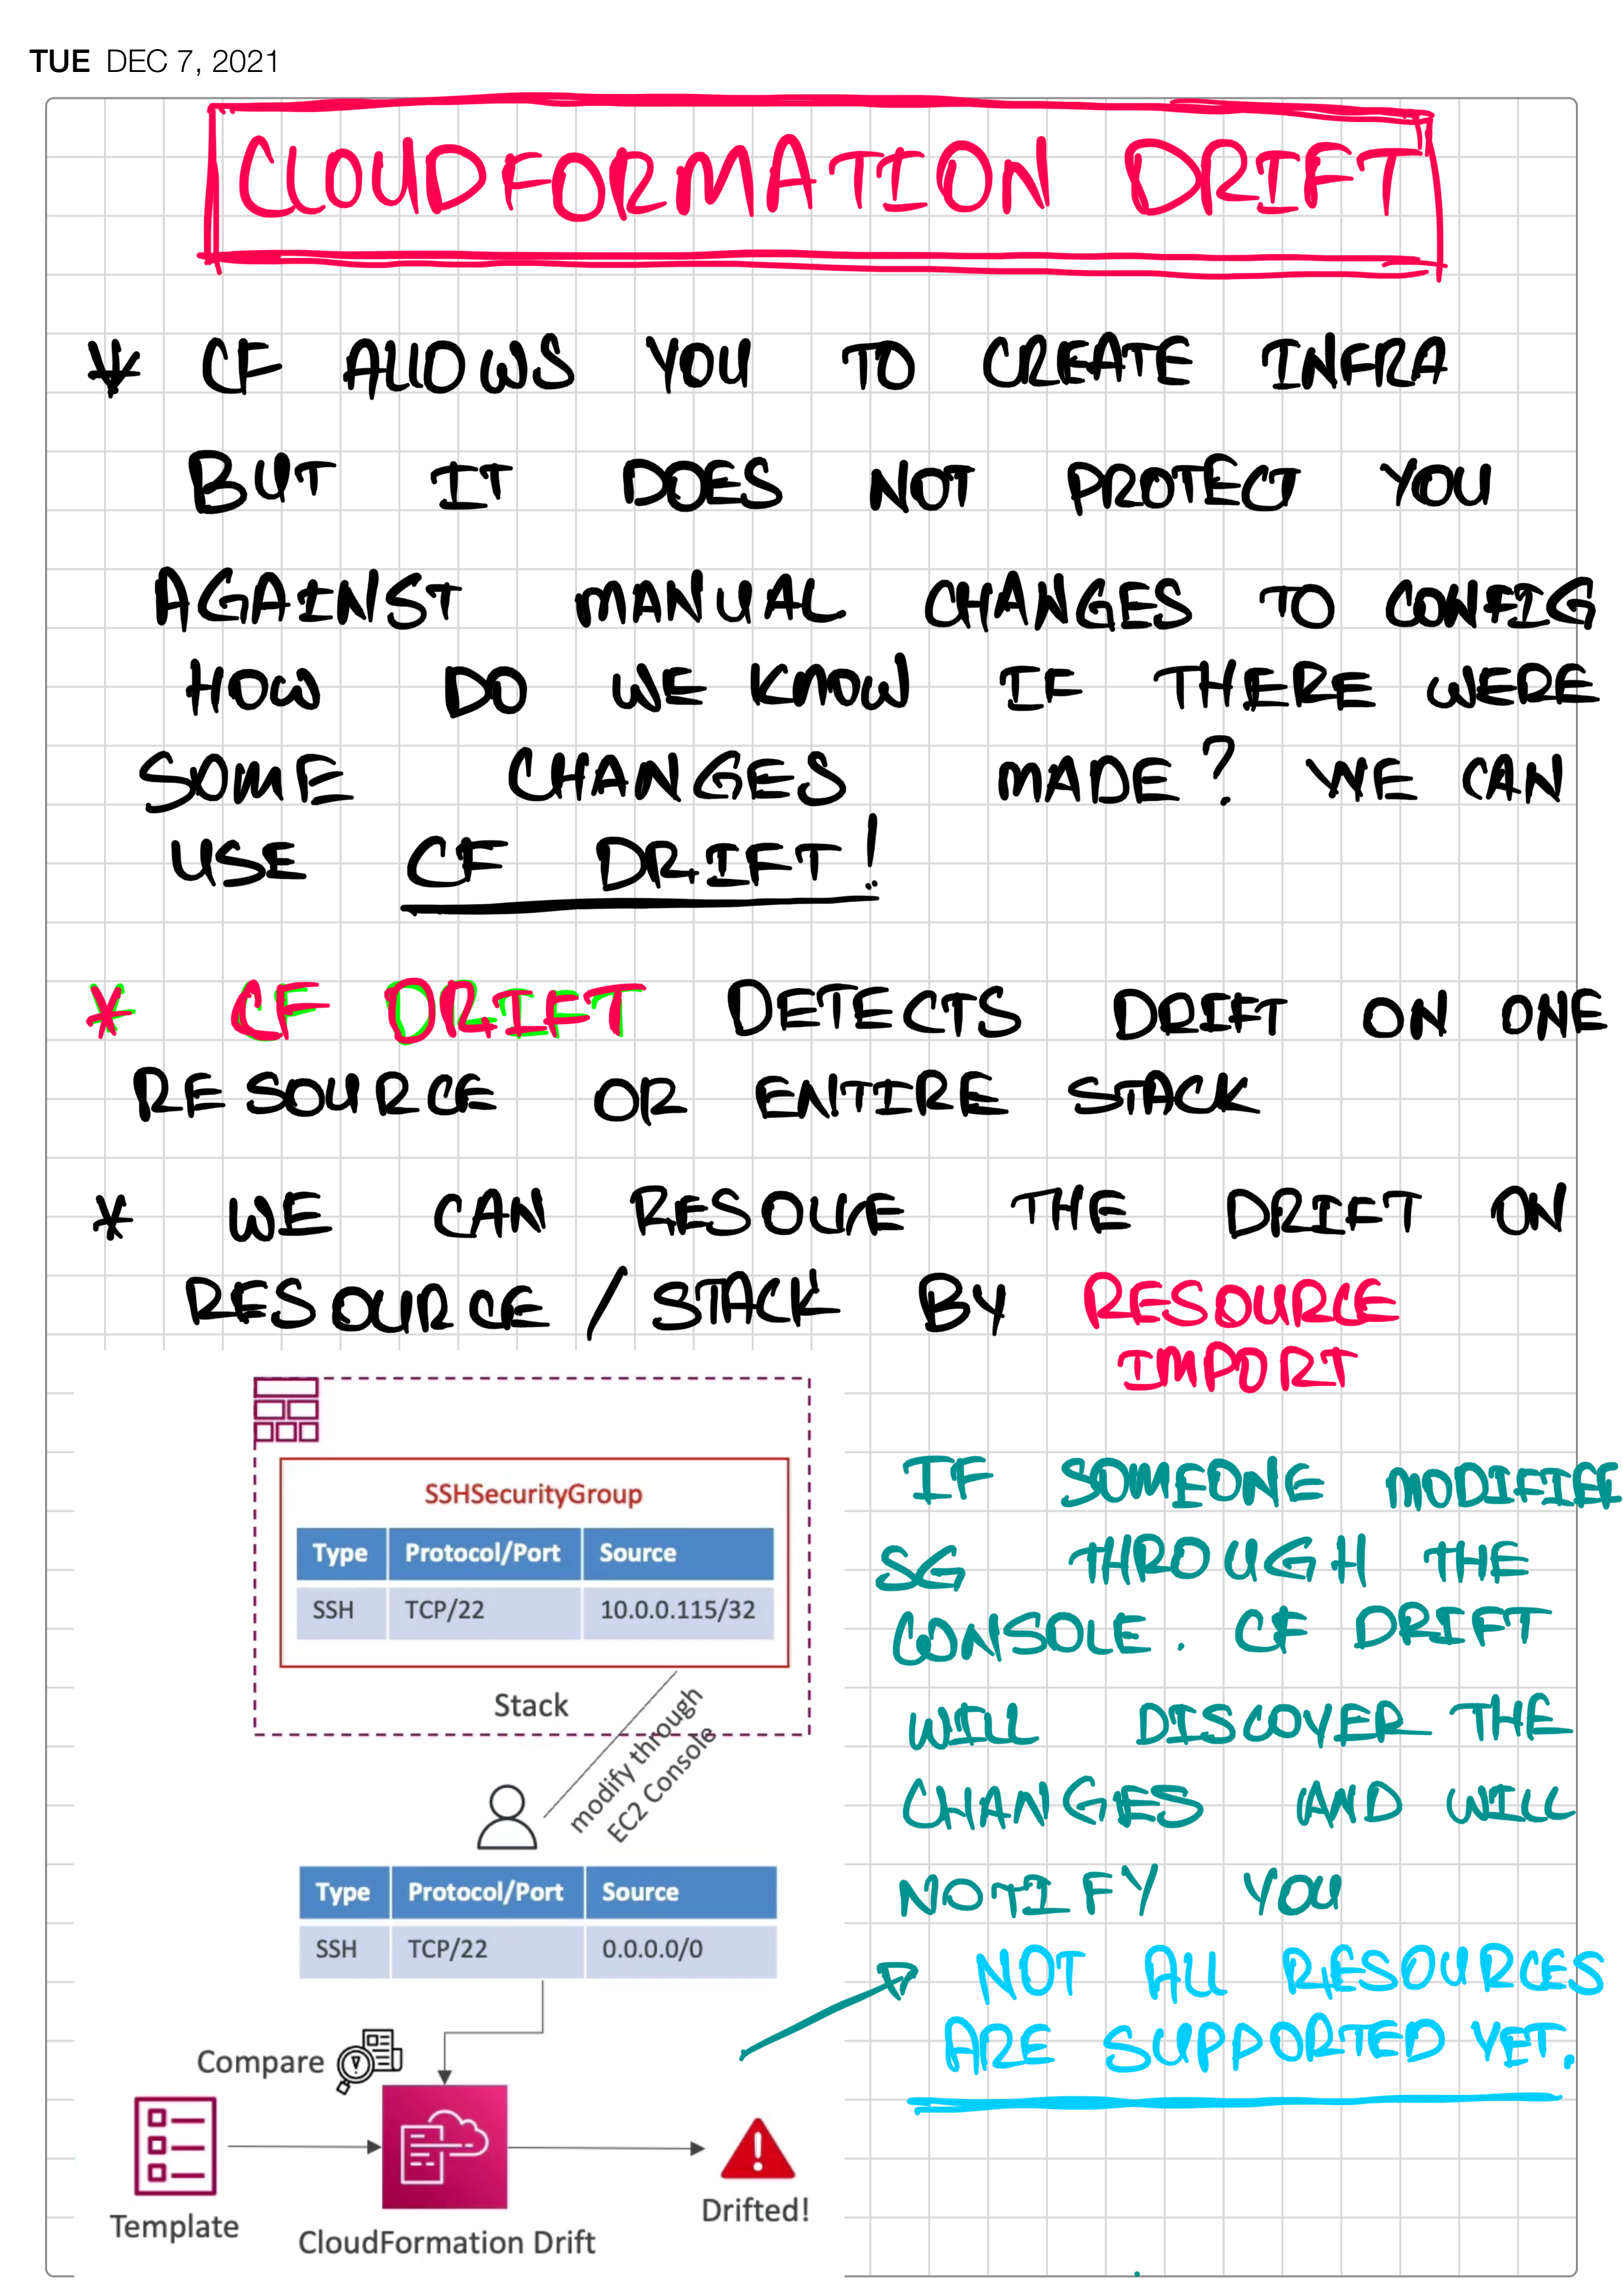 TUE DEC 7, 2021
CLOUDFORMATION DRIFT
* CF ALLOWS YOU TO CREATE INFRA
BUT IT DOES NOT PROTECT YOU
AGAINST MANUAL CHANGES TO CONFIG
HOW DO WE KNOW IF THERE WERE
SOME CHANGES MADE? WE CAN
USE CF DRIFT!
* CF DRIFT DETECTS DRIFT ON ONE
RESOURCE OR ENTIRE STACK
* WE CAN RESOLVE THE DRIFT ON
RESOURCE / STACK BY RESOURCE
IMPORT
SSHSecurityGroup
Type Protocol/Port Source
SSH TCP/22 10.0.0.115/32
Stack
modify through
EC2 Console
Type Protocol/Port Source
SSH TCP/22 0.0.0.0/0
Compare
Template
CloudFormation Drift
Drifted!
IF SOMEONE MODIFIES
SG THROUGH THE
CONSOLE. CF DRIFT
WILL DISCOVER THE
CHANGES AND WILL
NOTIFY YOU
NOT ALL RESOURCES
ARE SUPPORTED YET.